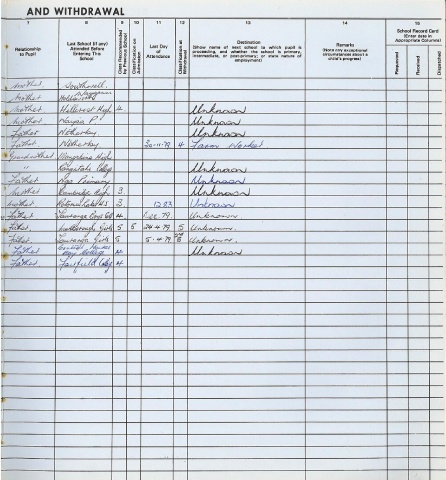 AND WITHDRAWAL
7 8 9 10 11 12 13 14 15
Relationship to Pupil
Last School (if any) Attended Before Entering This School
Class Recommended by Previous School
Classification on Admission
Last Day of Attendance
Classification at Withdrawal
Destination
(Show name of next school to which pupil is proceeding, and whether the school is primary, intermediate, or post-primary; or state nature of employment)
Remarks
(Note any exceptional circumstances about a child's progress)
School Record Card
(Enter date in Appropriate Columns)
Requested
Received
Despatched
Mother. Southwell.
Mother
Mother Hillcrest High 4 Unknown
Mother Unknown
Father Wetherby Unknown
Father Wetherby 30-11-79 4 Farm Worker
Grandmother High
" Unknown
Father Primary Unknown
Mother High 3. Unknown
Mother 3. 12.83 Unknown
Father Tauranga Boys Coll 4. 1 Dec 79. Unknown.
Father. Girls 5 5 24 4 79 5 Unknown.
Father Tauranga Girls 5 5-4-79 5 Unknown.
Father Unknown
Father Fairfield Coll 4